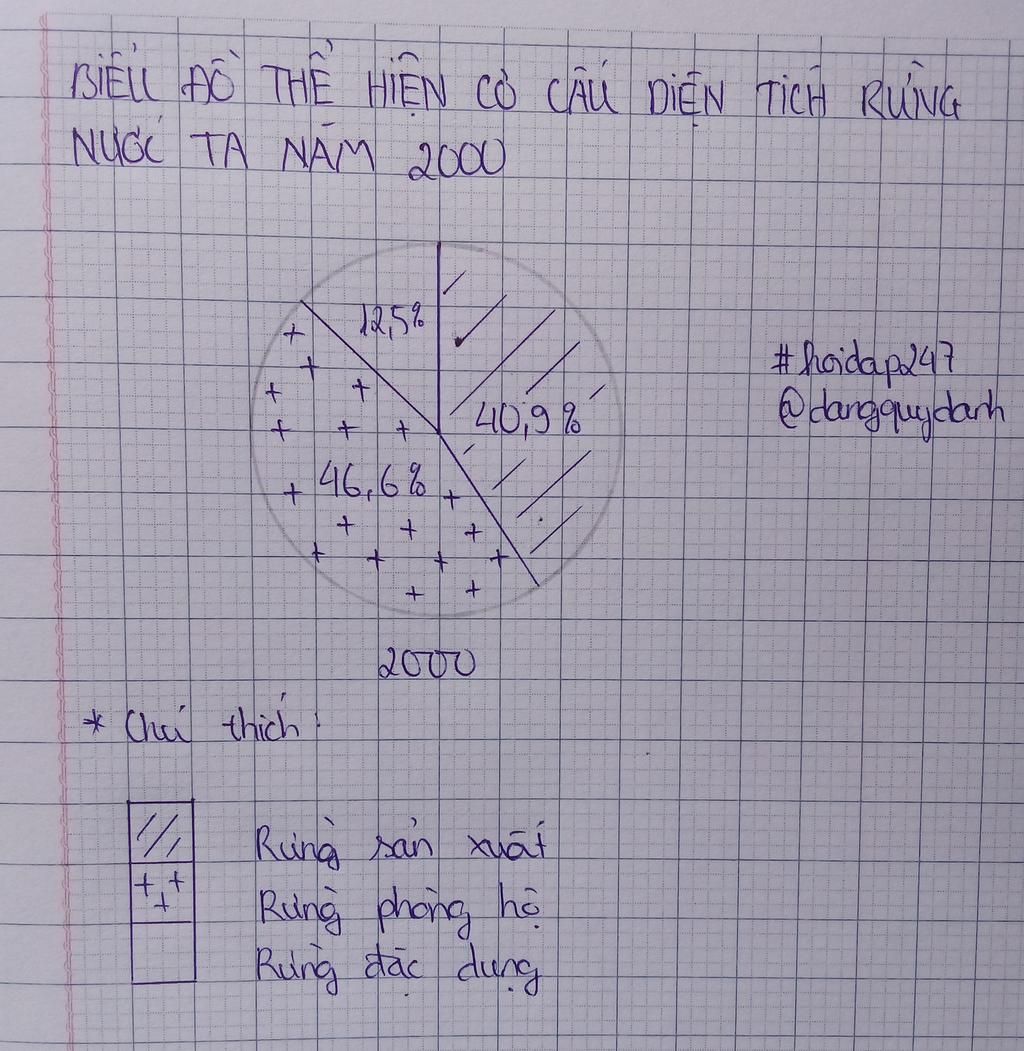 BIỂU ĐỒ THỂ HIỆN CƠ CẤU DIỆN TÍCH RỪNG
NƯỚC TA NĂM 2000
12,5%
#hoidap247
40,9%
@dangquydanh
46,6%
2000
* Chú thích:
Rừng sản xuất
Rừng phòng hộ
Rừng đặc dụng